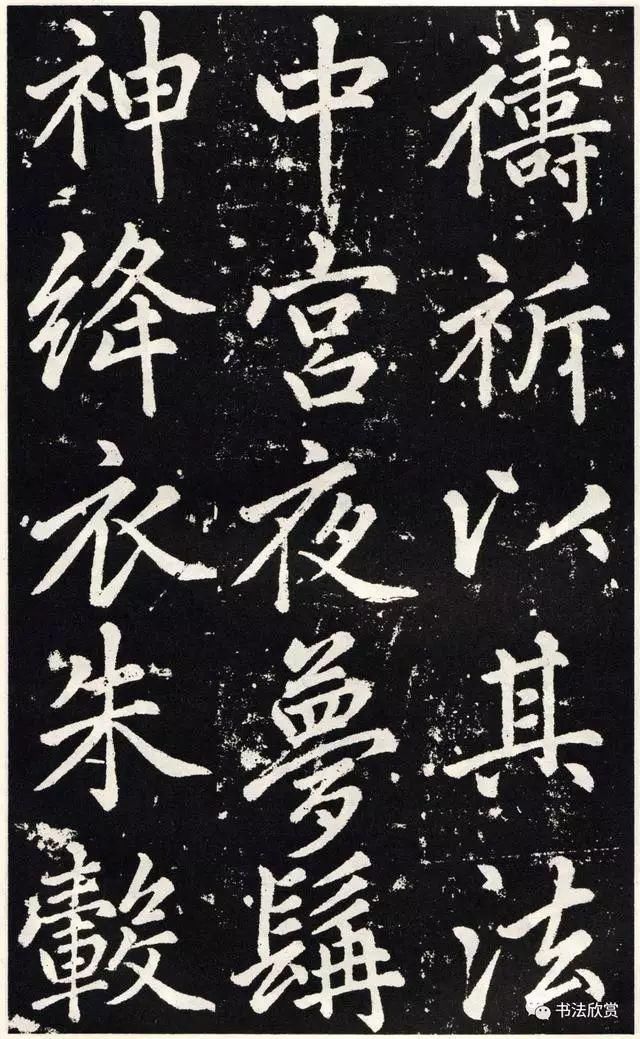 禱祈以其法
中宮夜夢髯
神絳衣朱轂
书法欣赏